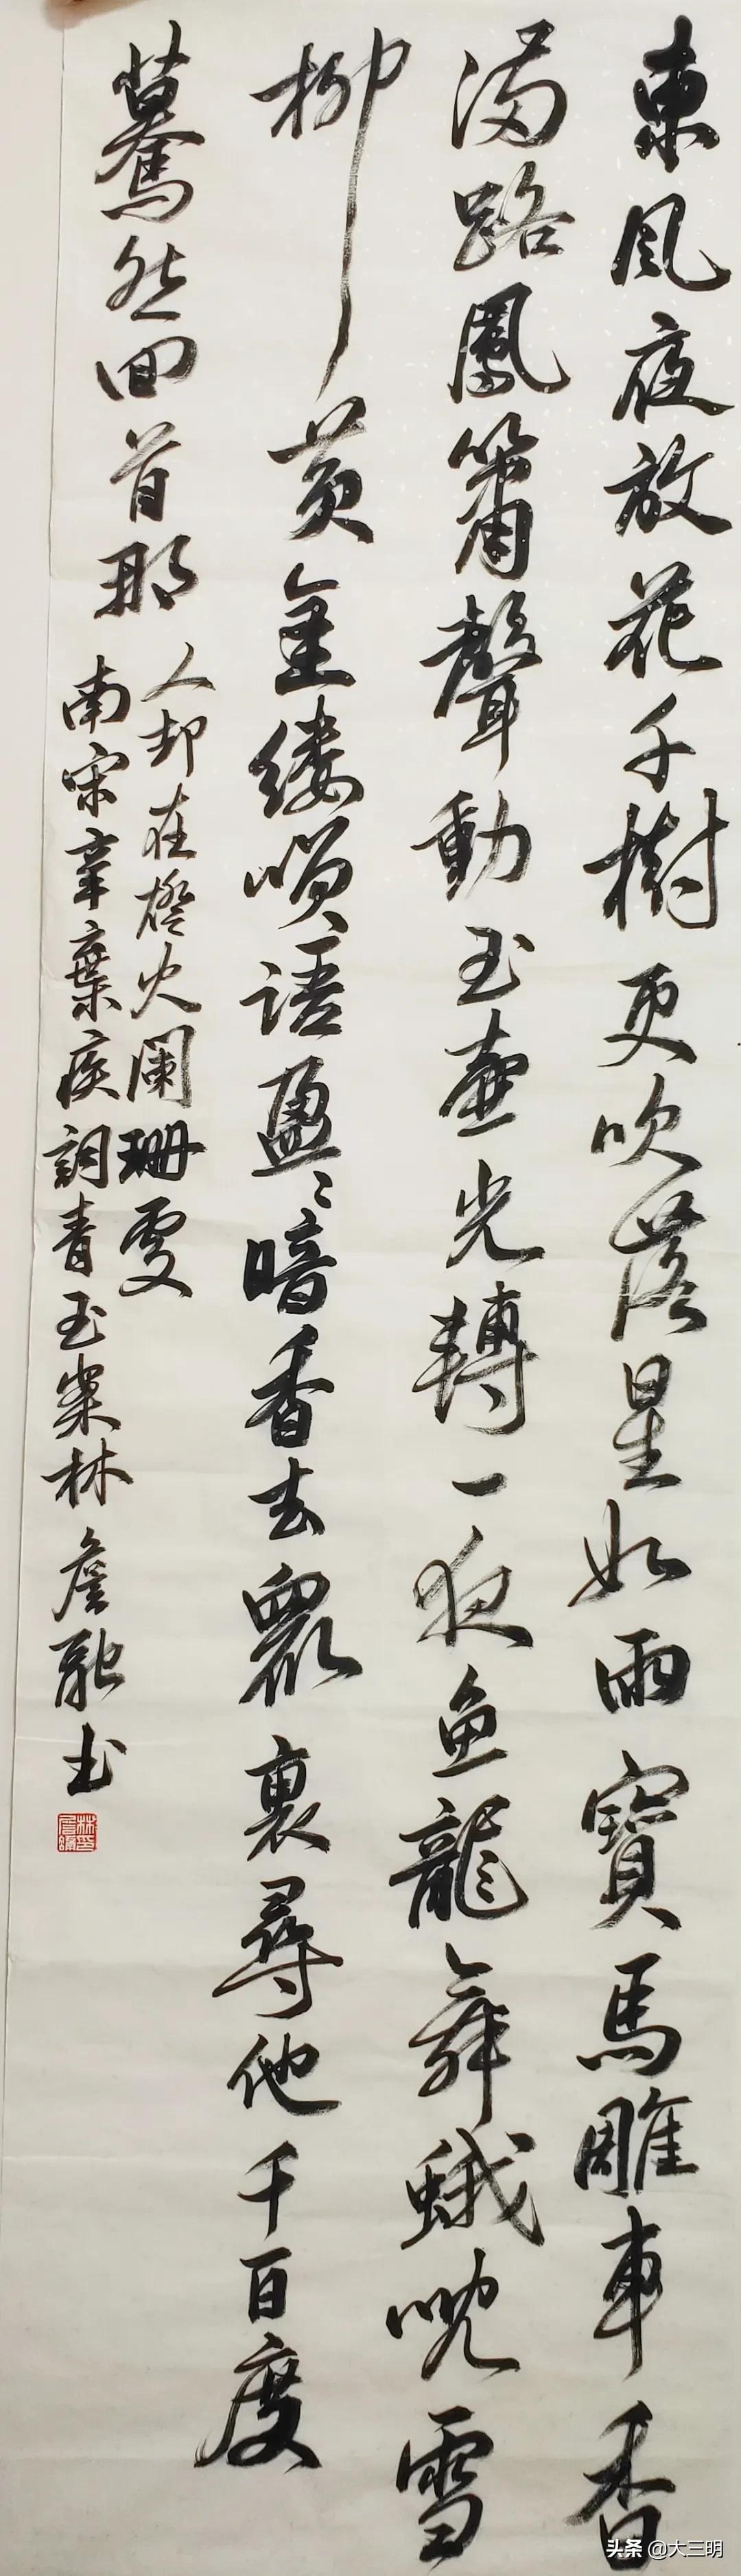 東風夜放花千樹更吹落星如雨寶馬雕車香
满路鳳簫聲動玉壺光轉一夜鱼龍舞蛾兒雪
柳黄金缕咲語盈〻暗香去眾裏尋他千百度
驀然回首那
人却在燈火阑珊處
南宋辛棄疾詞青玉案林詹融书
头条 @大三明